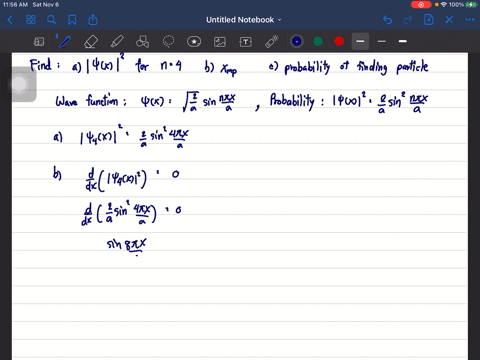 11:56 AM Sat Nov 6
100%
Untitled Notebook
Find : a) |Ψ(x)|² for n=4 b) x_mp c) probability of finding particle
Wave function : Ψ(x) = √(2/a) sin nπx/a , Probability : |Ψ(x)|² = 2/a sin² nπx/a
a) |Ψ₄(x)|² = 2/a sin² 4πx/a
b) d/dx (|Ψ₄(x)|²) = 0
d/dx (2/a sin² 4πx/a) = 0
sin 8πx